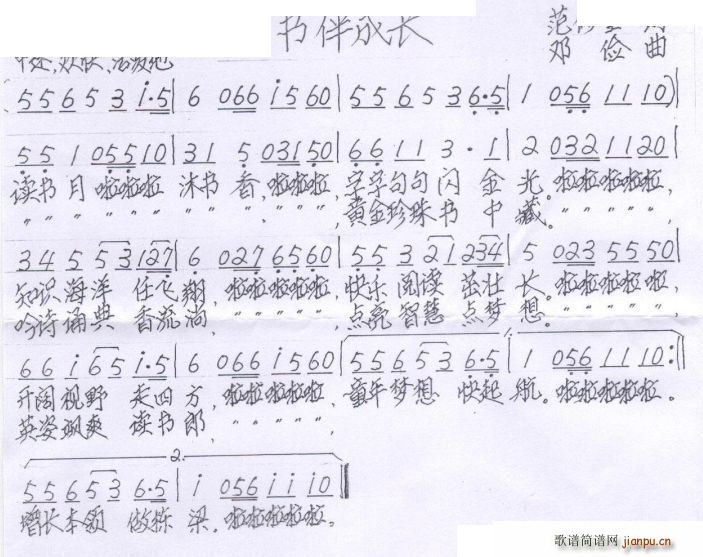 书伴成长
邓 俭 曲
中速、欢快、活泼地
(5 5 6 5 3 i·5 | 6 0 6 6 i 5 6 0 | 5 5 6 5 3 6·5 | 1 0 5 6 1 1 1 0)
5 5 1 0 5 5 1 0 | 3 1 5 0 3 1 5 0 | 6 6 1 1 3 · 1 | 2 0 3 2 1 1 2 0 |
读书月 啦啦啦 沐书 香, 啦啦啦, 字字句句 闪 金 光。啦啦啦啦啦,
" " " " " " " " ", " " ", 黄金珍珠 书 中 藏。" " " " ",
3 4 5 5 3 1 2 7 | 6 0 2 7 6 5 6 0 | 5 5 3 2 1 2 3 4 | 5 0 2 3 5 5 5 0 |
知识海洋 任飞翔, 啦啦啦啦啦, 快乐阅读 茁壮 长。啦啦啦啦啦,
吟诗诵典 香流淌, " " " " ", 点亮智慧 点梦 想。" " " " ",
1.
6 6 i 6 5 i·5 | 6 0 6 6 i 5 6 0 | 5 5 6 5 3 6·5 | 1 0 5 6 1 1 1 0 :||
开阔视野 走四 方, 啦啦啦啦啦, 童年梦想 快起 航。啦啦啦啦啦。
英姿飒爽 读书 郎, " " " " ",
2.
5 5 6 5 3 6·5 | i 0 5 6 i i i 0 ||
增长本领 做栋 梁, 啦啦啦啦啦。
歌谱简谱网 jianpu.cn